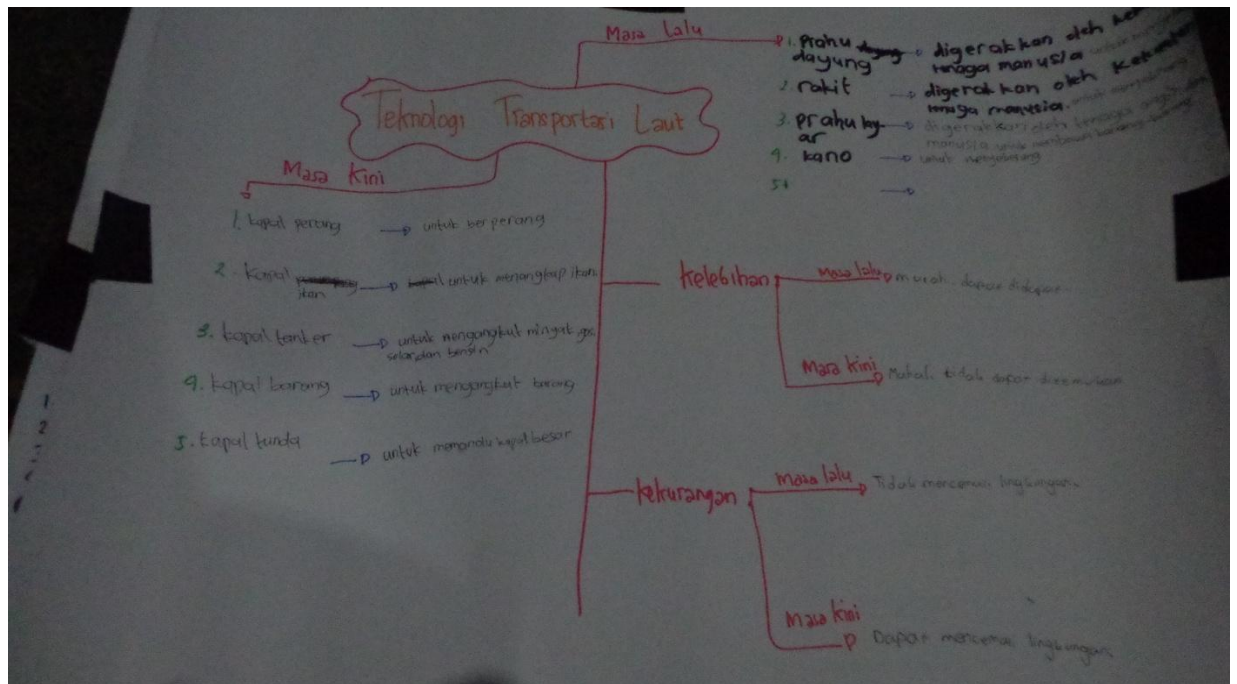 Teknologi Transportasi Laut
Masa lalu
1. Prahu dayung digerakkan oleh
tenaga manusia
2. rakit digerakkan oleh
tenaga manusia.
3. prahu lay-
ar digerakkan oleh tenaga
manusia
4. kano untuk
5.
Masa Kini
1. kapal perang untuk berperang
2. Kapal untuk menangkap ikan
ikan
3. kapal tanker untuk mengangkut minyak, gas
solar, dan bensin
4. kapal barang untuk mengangkut barang
5. kapal tunda untuk memandu kapal besar
Kelebihan
Masa lalu murah, dapat didapat
Masa kini Mahal, tidak dapat
kekurangan
masa lalu Tidak lingkungan.
Masa kini
Dapat lingkungan.
1
2